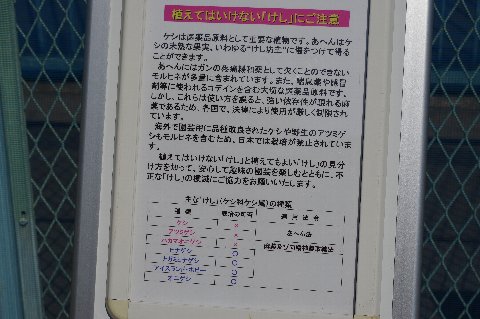 植えてはいけない「けし」にご注意
ケシは医薬品原料として重要な植物です。あへんはケ
シの未熟な果実、いわゆる"けし坊主"に傷をつけて得る
ことができます。
あへんにはガンの疼痛緩和薬として欠くことのできない
モルヒネが多量に含まれています。また、咳止薬や
剤等に使われるコデインを含む大切な医薬品原料です。
しかし、これらは使い方を誤ると、強い依存性が現れる麻
薬であるため、各国で、法律により使用が厳しく制限され
ています。
海外で園芸用に品種改良されたケシや野生のアツミゲ
シもモルヒネを含むため、日本では栽培が禁止されていま
す。
植えてはいけない「けし」と植えてもよい「けし」の見分
け方を知って、安心して趣味の園芸を楽しむとともに、不
正な「けし」の撲滅にご協力をお願いいたします。
主な「けし」(ケシ科ケシ属)の種類
種類 栽培の可否 適用法令
ケシ ×
アツミゲシ × あへん法
ハカマオニゲシ × 麻薬及び向精神薬取締法
ヒナゲシ ○
トゲミゲシ ○
アイスランド・ポピー ○
オニゲシ ○